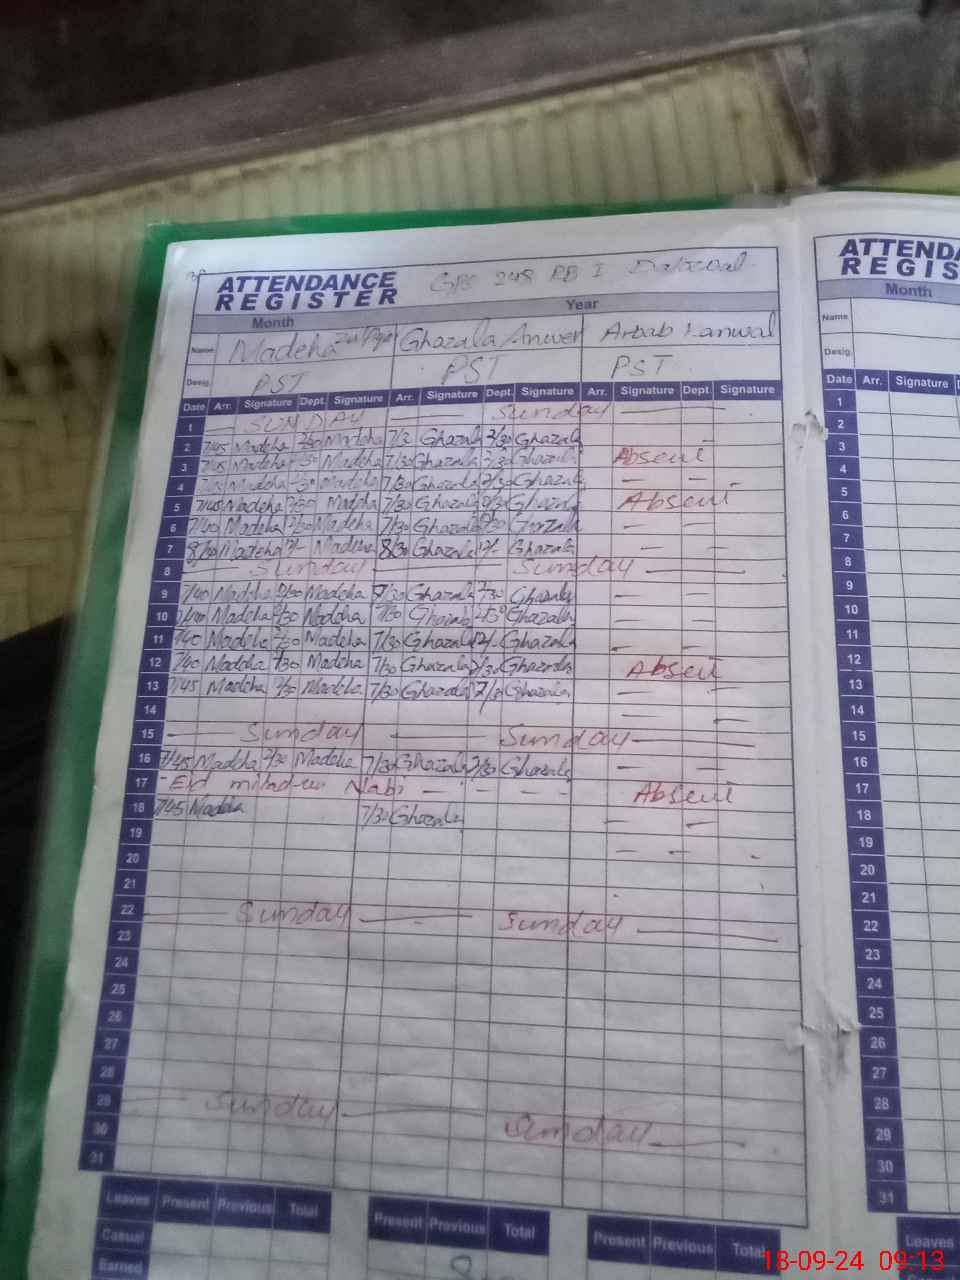 ATTENDANCE REGISTER GPS 248 RB I
Month Year
Name Madeha Ghazala Anwer Arbab Kanwal
Desig. PST PST PST
Date Arr. Signature Dept. Signature Arr. Signature Dept. Signature Arr. Signature Dept. Signature
1 SUNDAY Sunday
2 7/45 Madeha 2/30 Madeha Ghazala 2/30 Ghazala
3 7/45 Madeha Madeha 7/30 Ghazala 2/30 Ghazala Absent
4 Madeha Madeha 7/30 Ghazala Ghazala
5 7/45 Madeha Madeha 7/30 Ghazala Ghazala Absent
6 7/40 Madeha Madeha 7/30 Ghazala
7 8/30 Madeha Madeha 8/30 Ghazala 12/- Ghazala
8 Sunday Sunday
9 7/40 Madeha 2/30 Madeha 7/30 Ghazala 2/30 Ghazala
10 Madeha 2/30 Madeha 7/30 Ghazala Ghazala
11 7/40 Madeha 2/30 Madeha 7/30 Ghazala 12/- Ghazala
12 7/40 Madeha 2/30 Madeha 7/30 Ghazala 2/30 Ghazala Absent
13 7/45 Madeha Madeha 7/30 Ghazala Ghazala
14
15 Sunday Sunday
16 7/45 Madeha 2/30 Madeha 7/30 Ghazala 2/30 Ghazala
17 Eid Nabi Absent
18 7/45 Madeha 7/30 Ghazala
19
20
21
22 Sunday Sunday
23
24
25
26
27
28
29 Sunday Sunday
30
31
Leaves Present Previous Total Present Previous Total Present Previous Total
Casual
Earned
Month
Name
Desig.
Date Arr. Signature
1
2
3
4
5
6
7
8
9
10
11
12
13
14
15
16
17
18
19
20
21
22
23
24
25
26
27
28
29
30
31
Leaves
18-09-24 09:13